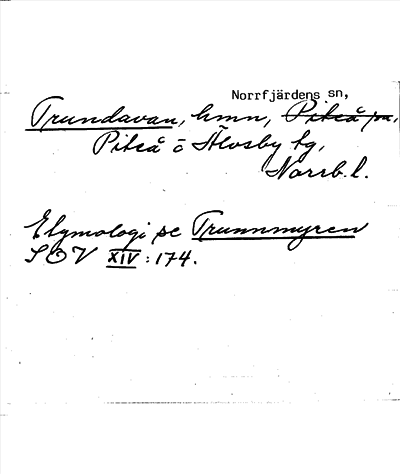 Norrfjärdens sn,
Trundavan, hmn, Piteå sn,
Piteå o Älvsby tg,
Norrb. l.
Etymologi se Trunnmyren
SOV XIV: 174.